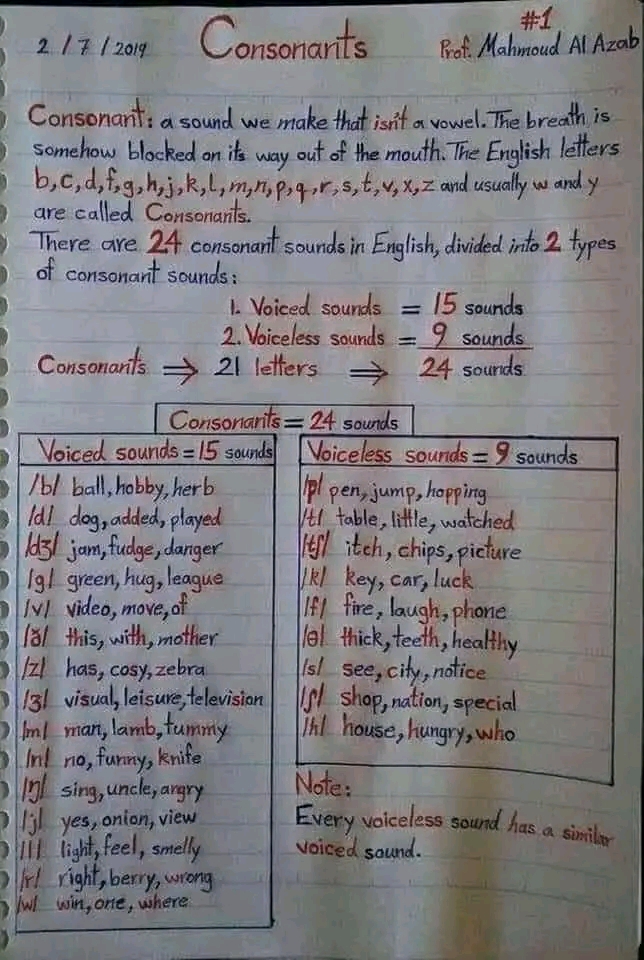 #1
2/7/2019 Consonants Prof. Mahmoud Al Azab
Consonant: a sound we make that isn't a vowel. The breath is
somehow blocked on its way out of the mouth. The English letters
b,c,d,f,g,h,j,k,l,m,n,p,q,r,s,t,v,x,z and usually w and y
are called Consonants.
There are 24 consonant sounds in English, divided into 2 types
of consonant sounds:
1. Voiced sounds = 15 sounds
2. Voiceless sounds = 9 sounds
Consonants ⇒ 21 letters ⇒ 24 sounds
Consonants = 24 sounds
Voiced sounds = 15 sounds
/b/ ball, hobby, herb
/d/ dog, added, played
/dʒ/ jam, fudge, danger
/g/ green, hug, league
/v/ video, move, of
/ð/ this, with, mother
/z/ has, cosy, zebra
/ʒ/ visual, leisure, television
/m/ man, lamb, tummy
/n/ no, funny, knife
/ŋ/ sing, uncle, angry
/j/ yes, onion, view
/l/ light, feel, smelly
/r/ right, berry, wrong
/w/ win, one, where
Voiceless sounds = 9 sounds
/p/ pen, jump, hopping
/t/ table, little, watched
/tʃ/ itch, chips, picture
/k/ key, car, luck
/f/ fire, laugh, phone
/θ/ thick, teeth, healthy
/s/ see, city, notice
/ʃ/ shop, nation, special
/h/ house, hungry, who
Note:
Every voiceless sound has a similar
voiced sound.